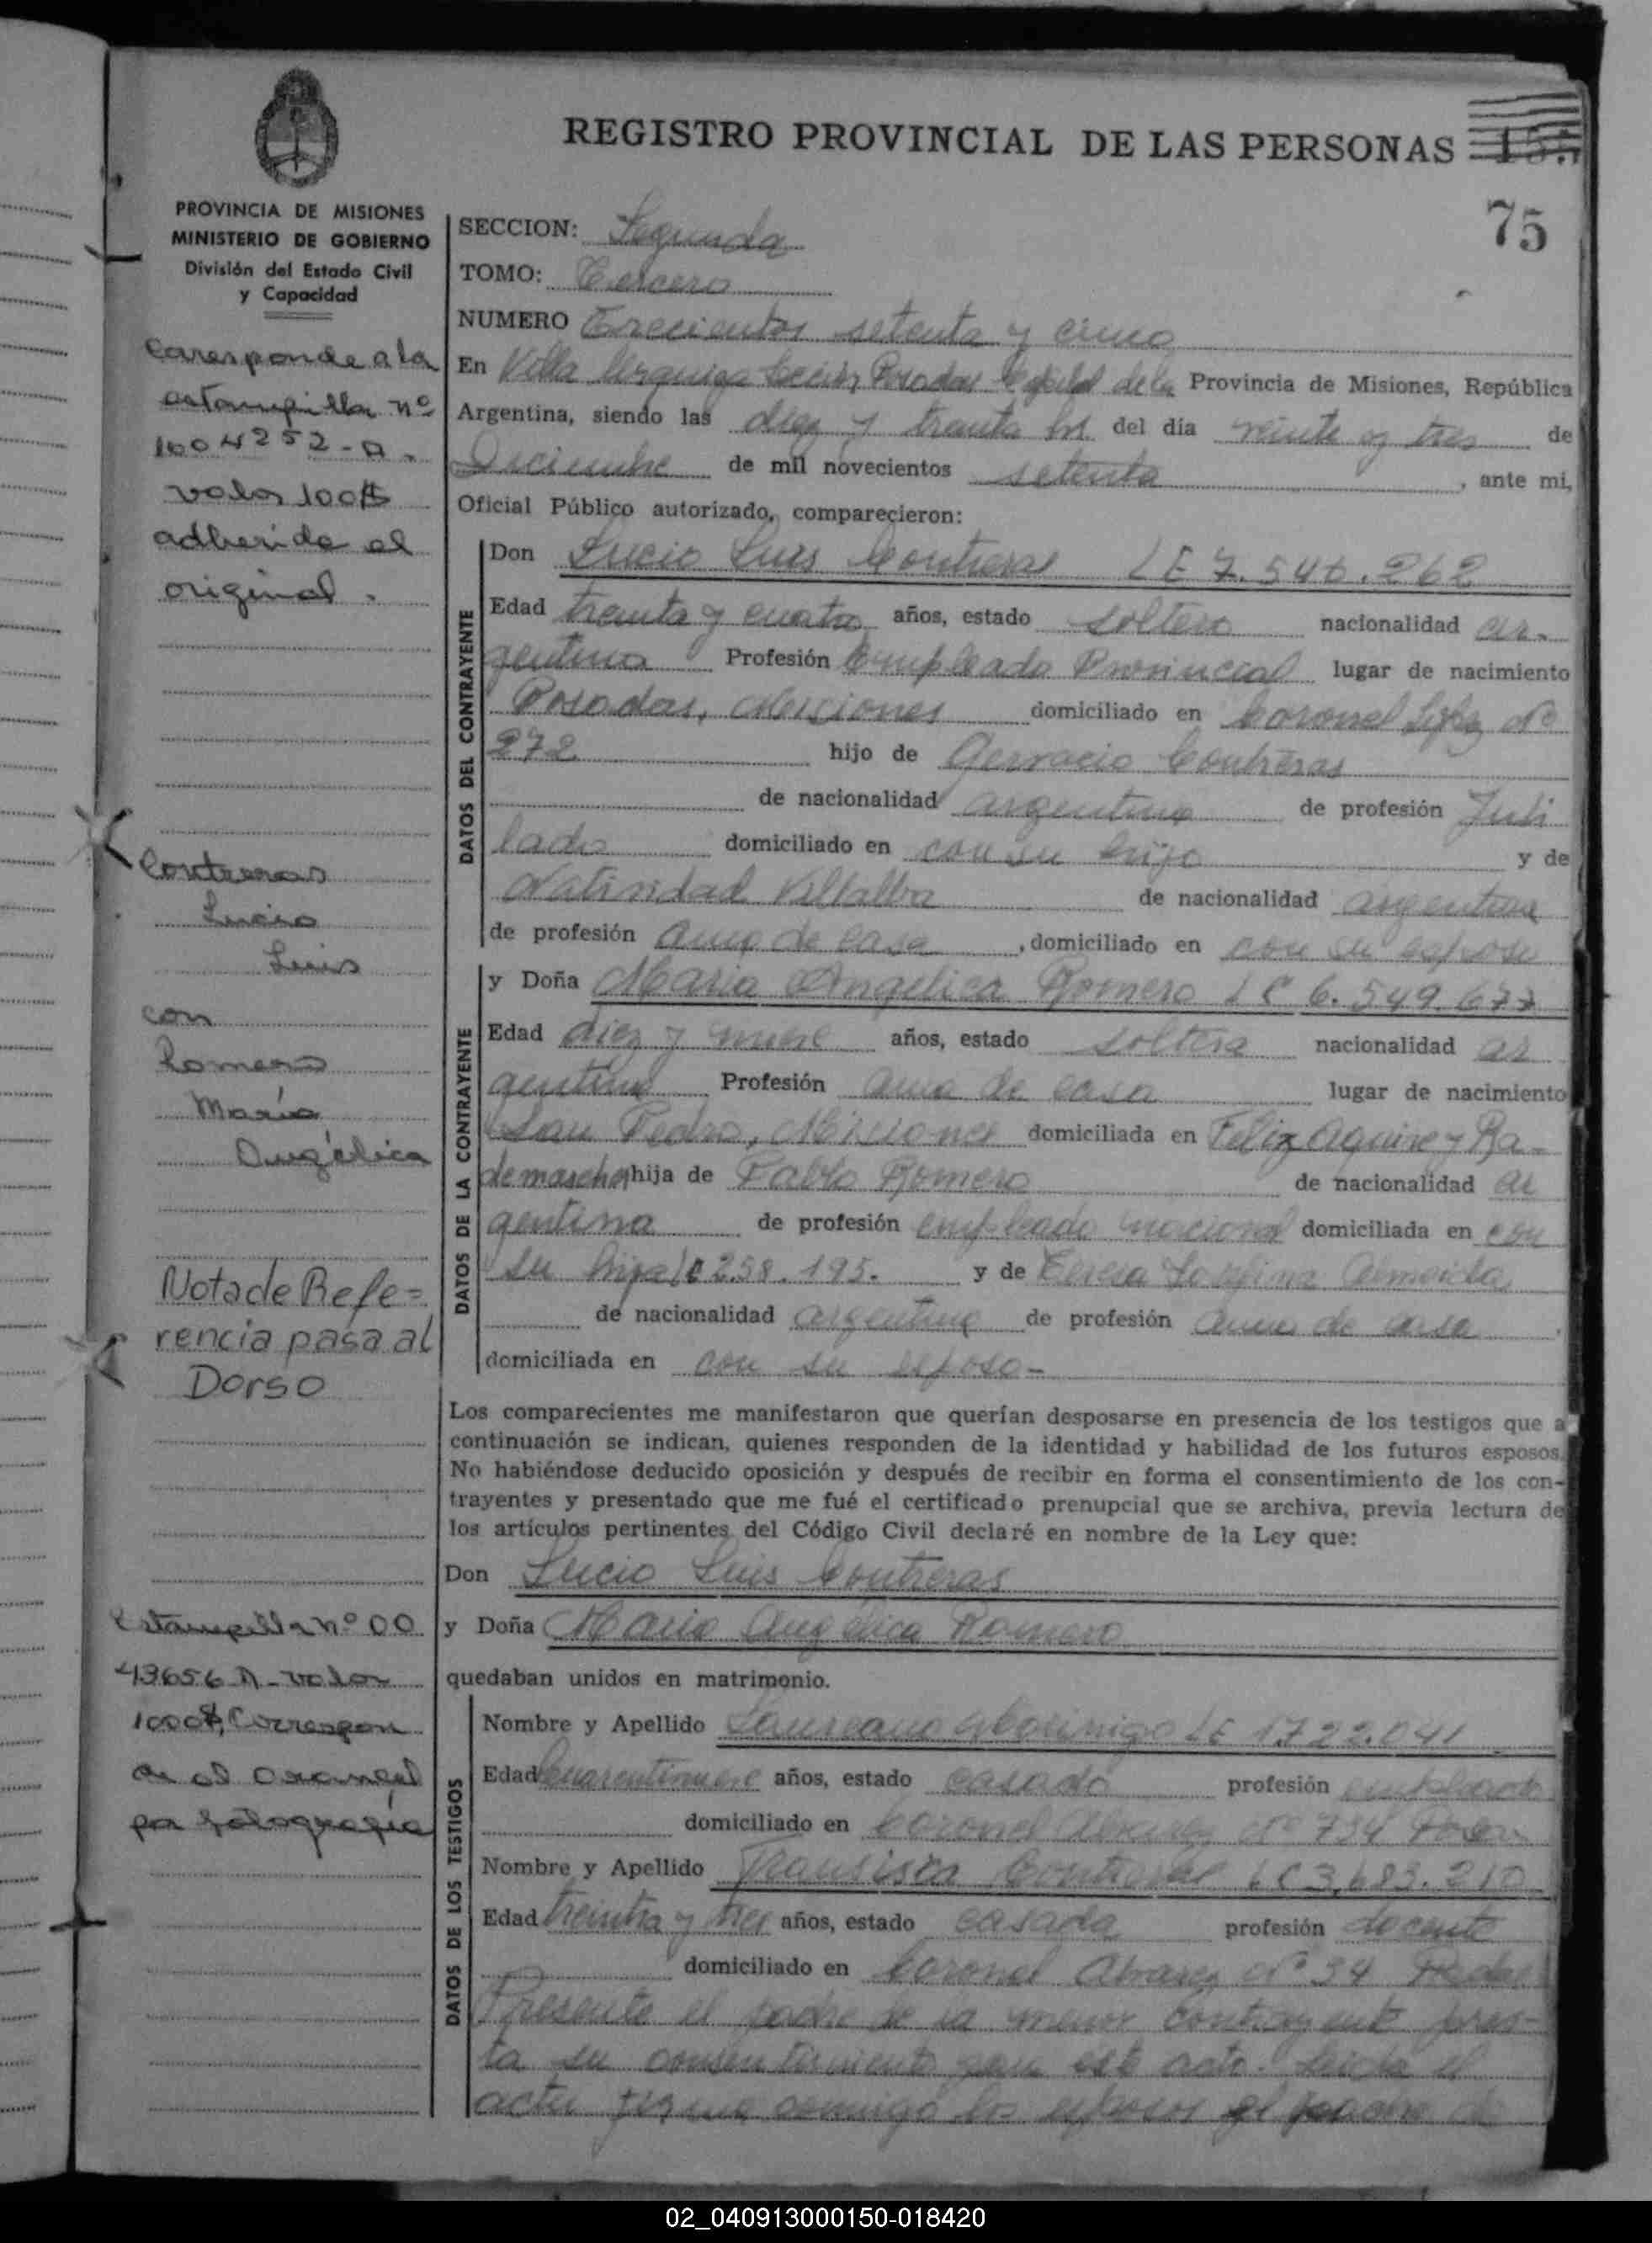 REGISTRO PROVINCIAL DE LAS PERSONAS
75
PROVINCIA DE MISIONES
MINISTERIO DE GOBIERNO
División del Estado Civil
y Capacidad
Corresponde a la
estampilla nº
1004252-A.
valor 100$
adherida al
original.
Contreras
Lucio
Luis
con
Romero
María
Angélica
Nota de Refe=
rencia pasa al
Dorso
Estampilla nº 00
43656 A - valor
1000$, Correspon
de al arancel
por fotografía
SECCION: Segunda
TOMO: Tercero
NUMERO Trecientos setenta y cinco
En Villa Urquiza Sección Posadas Capital de la Provincia de Misiones, República
Argentina, siendo las diez y treinta hs. del día veinte y tres de
Diciembre de mil novecientos setenta, ante mi,
Oficial Público autorizado, comparecieron:
DATOS DEL CONTRAYENTE
Don Lucio Luis Contreras LE 7.546.262
Edad treinta y cuatro años, estado soltero nacionalidad ar-
gentina Profesión Empleado Provincial lugar de nacimiento
Posadas, Misiones domiciliado en Coronel López Nº
272 hijo de Gervacio Contreras
de nacionalidad argentina de profesión Jubi
lado domiciliado en con su hijo y de
Natividad Villalba de nacionalidad argentina
de profesión ama de casa, domiciliado en con su esposo
DATOS DE LA CONTRAYENTE
y Doña María Angélica Romero LC 6.549.677
Edad diez y nueve años, estado soltera nacionalidad ar
gentina Profesión ama de casa lugar de nacimiento
San Pedro, Misiones domiciliada en Feliz Aguirre y Ra-
demascher hija de Pablo Romero de nacionalidad ar
gentina de profesión empleado nacional domiciliada en con
su hija 258.195. y de Teresa Almeida
de nacionalidad argentina de profesión ama de casa
domiciliada en con su esposo-
Los comparecientes me manifestaron que querían desposarse en presencia de los testigos que a
continuación se indican, quienes responden de la identidad y habilidad de los futuros esposos.
No habiéndose deducido oposición y después de recibir en forma el consentimiento de los con-
trayentes y presentado que me fué el certificado prenupcial que se archiva, previa lectura de
los artículos pertinentes del Código Civil declaré en nombre de la Ley que:
Don Lucio Luis Contreras
y Doña María Angélica Romero
quedaban unidos en matrimonio.
DATOS DE LOS TESTIGOS
Nombre y Apellido Laureano Morinigo LE 1.722.041
Edad Cuarentinueve años, estado casado profesión empleado
domiciliado en Coronel Alvarez Nº 734
Nombre y Apellido Contreras LC 3.683.210
Edad treinta y tres años, estado casada profesión docente
domiciliado en Coronel Alvarez Nº 34
Presente el padre de la menor contrayente pres-
ta su consentimiento para este acto. Leida el
acta firma conmigo los esposos el padre de
02_040913000150-018420